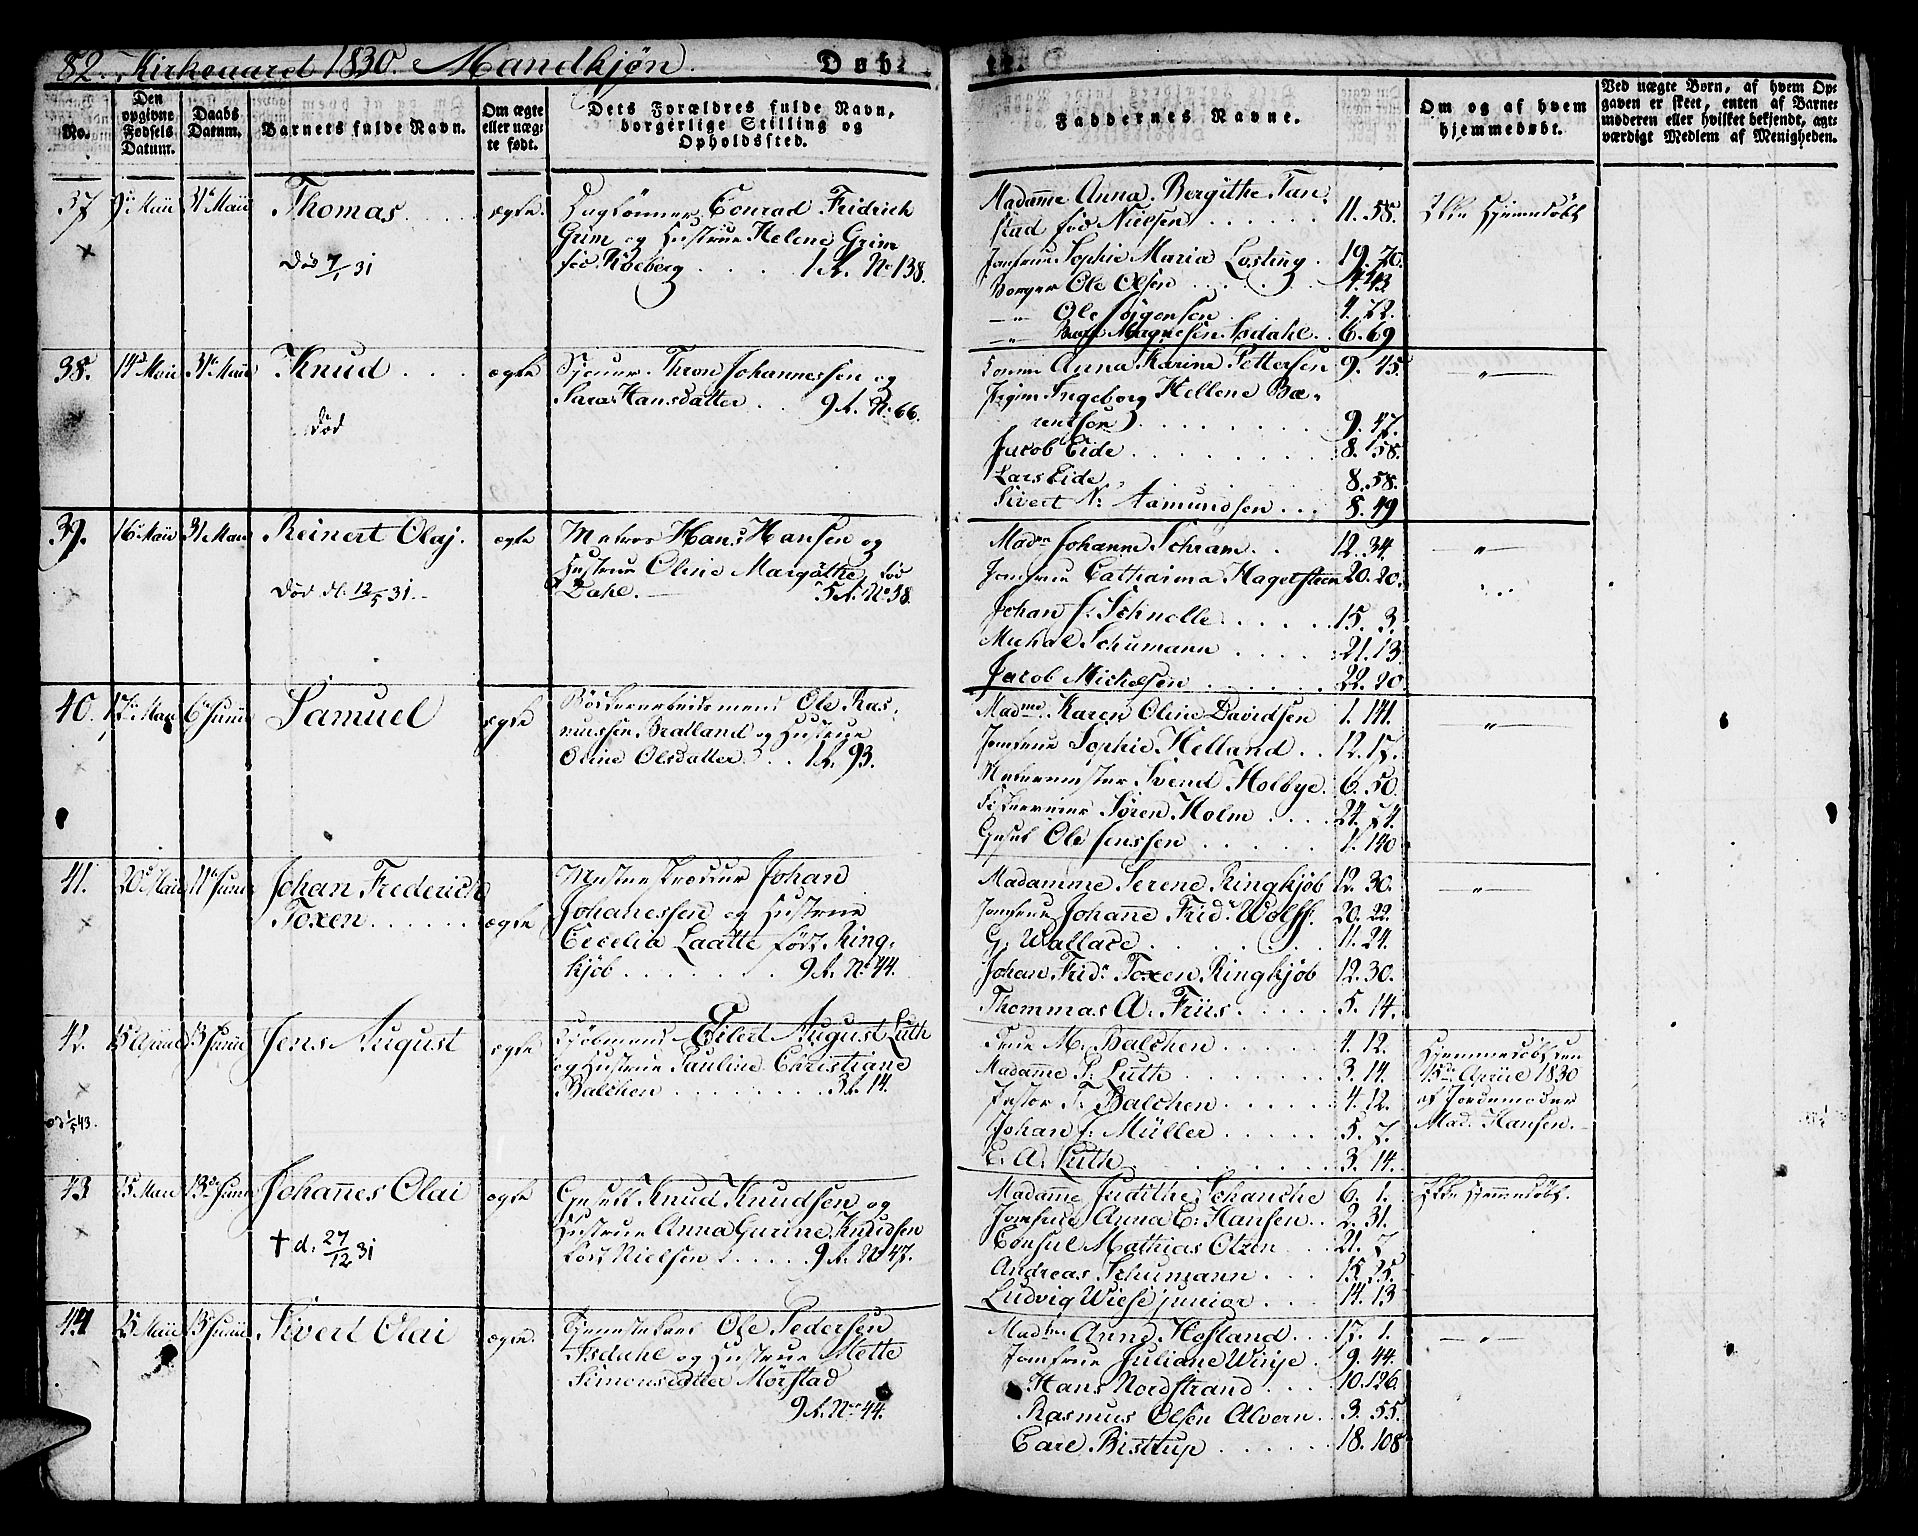 82. Kirkeaaret 1830. Mandkjøn. Døbte.
No.
Den opgivne Fødsels Datum.
Daabs Datum.
Barnets fulde Navn.
Om ægte eller nægte født.
Dets Forældres fulde Navn, borgerlige Stilling og Opholdssted.
Faddernes Navne.
Om og af hvem hjemmedøbt.
Ved nægte Børn, af hvem Opgaven er skeet, enten af Barnemoderen eller hvilket bekjendt, agtværdigt Medlem af Menigheden.
37 9de Maii 31te Maii Thomas ægte.
død 7/1 31
Conrad Fridrich
Grim og Hustrue Helene Grim
fød Kloeberg 1 R. No 138.
Madamme Anna Bergithe Tan-
stad fød Nielsen 11. 58.
Jomfrue Sophie Maria Losting 19. 70.
Borger Ole Olsen 4. 43
Ole Jørgensen 4. 72.
6. 69
Ikke hjemmedøbt
38. 14de Maii 31te Maii Knud ægte
død
Thron Johannessen og
Sara Hansdatter 9 R. No 66.
Anna Karine Pettersen 9. 45.
Pigen Ingeborg Hellene Bæ-
rentsen 9. 47.
Jacob Eide 8. 58.
Lars Eide 8. 58.
Sivert N. Aamundsen 8. 49
39. 16de Maii 31 Maii Reinert Olaj. ægte
død d. 12/5 31.
Matros Hans Hansen og
Hustrue Oline Margrethe, fød
Dahl. 5 R. No 38.
Madme Johanne Schram 12. 34.
Jomfrue Catharina Hagelsteen 20. 20.
Johan J. Schnelle 15. 3.
Michal Schumann 21. 13.
Jacob Michelsen 22. 20.
40. 17de Maii 6te Junii Samuel ægte
Ole Ras-
mussen Bratland og Hustrue
Oline Olsdatter 1 R. 93.
Madme Karen Oline Davidsen 1. 141.
Jomfrue Sophie Helland 12. 17.
Svend Holbye 6. 50.
Søren Holm 24. 54.
Gesel Ole Jenssen 1. 140.
41. 20de Maii 11te Junii Johan Frederich
Toxen ægte
Mester Johan
Johanessen og Hustrue
Cecelia Laatte født Ring-
kjøb 9 R. No 44.
Madamme Serene Ringkjøb 12. 30.
Jomfrue Johanne Fridr. Wolff. 20. 22.
G. Wallace 11. 24.
Johan Fridr. Toxen Ringkjøb 12. 30.
Thommas A. Friis 5. 14.
42. 13 Junii Jens August ægte
1/5 43.
Kjøbmand Eilert August Luth
og Hustrue Pauline Christiane
Balchen 3 R. 14.
Frue M. Balchen 4. 12.
Madamme P. Luth 3. 14.
Pastor F. Balchen 4. 12.
Johan J. Müller 5. 7.
E. A. Luth 3. 14.
Hjemmedøbt den
15de Aprill 1830
af Jordemoder
Mad. Hansen.
43 15 Maii 13de Junii Johannes Olai ægte
† d. 27/12 31
Gesell Knud Knudsen og
Hustrue Anna Gurine Knudsen
født Nielsen 9 R. No 47.
Madamme Judithe Schanche 6. 1.
Jomfrue Anna C. Hansen 2. 31.
Consul Mathias Olzen 21. 7
Andreas Schumann 15. 25.
Ludvig Wiese junior 14. 13
Ikke hjemmedøbt.
44 25 Maii 13 Junii Sivert Olai ægte.
Tjenestekarl Ole Pedersen
Isdahl og Hustrue Mette
Simonsdatter Mørstad
9 R. No 44.
Madme Anne Hofland 17. 1.
Jomfrue Juliane Winje 9. 44.
Hans Nordstrand 10. 126.
Rasmus Olsen Alvern 3. 55.
Carl Bistrup 18. 108